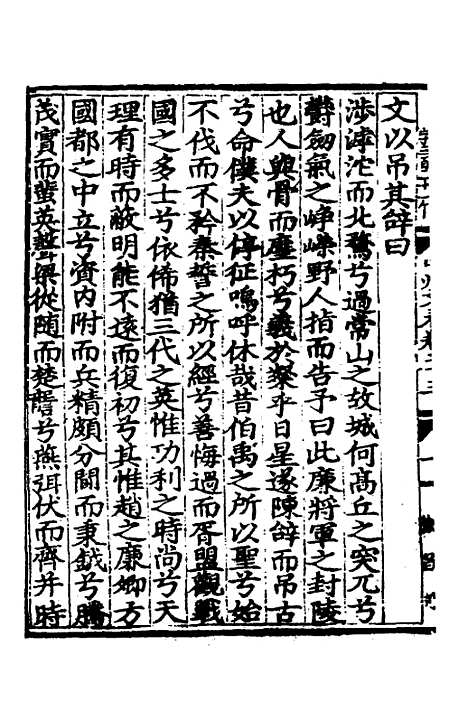 文以吊其辭曰
涉滹沱而北騖兮過常山之故城何髙丘之突兀兮
欝劒氣之崢嶸野人指而告予曰此廉將軍之封陵
也人與骨而塵朽兮義於粲乎日星遂陳辭而吊古
兮命僕夫以停征嗚呼休哉昔伯禹之所以聖兮始
不伐而不矜秦誓之所以經兮善悔過而胥盟觀戰
國之多士兮依俙猶三代之英惟功利之時尚兮天
理有時而蔽明能不逺而復初兮其惟趙之廉卿方
國都之中立兮濟内附而兵精頗分閫而秉鉞兮騰
茂實而蜚英聲梁從隨而楚讋兮燕弭伏而齊并時